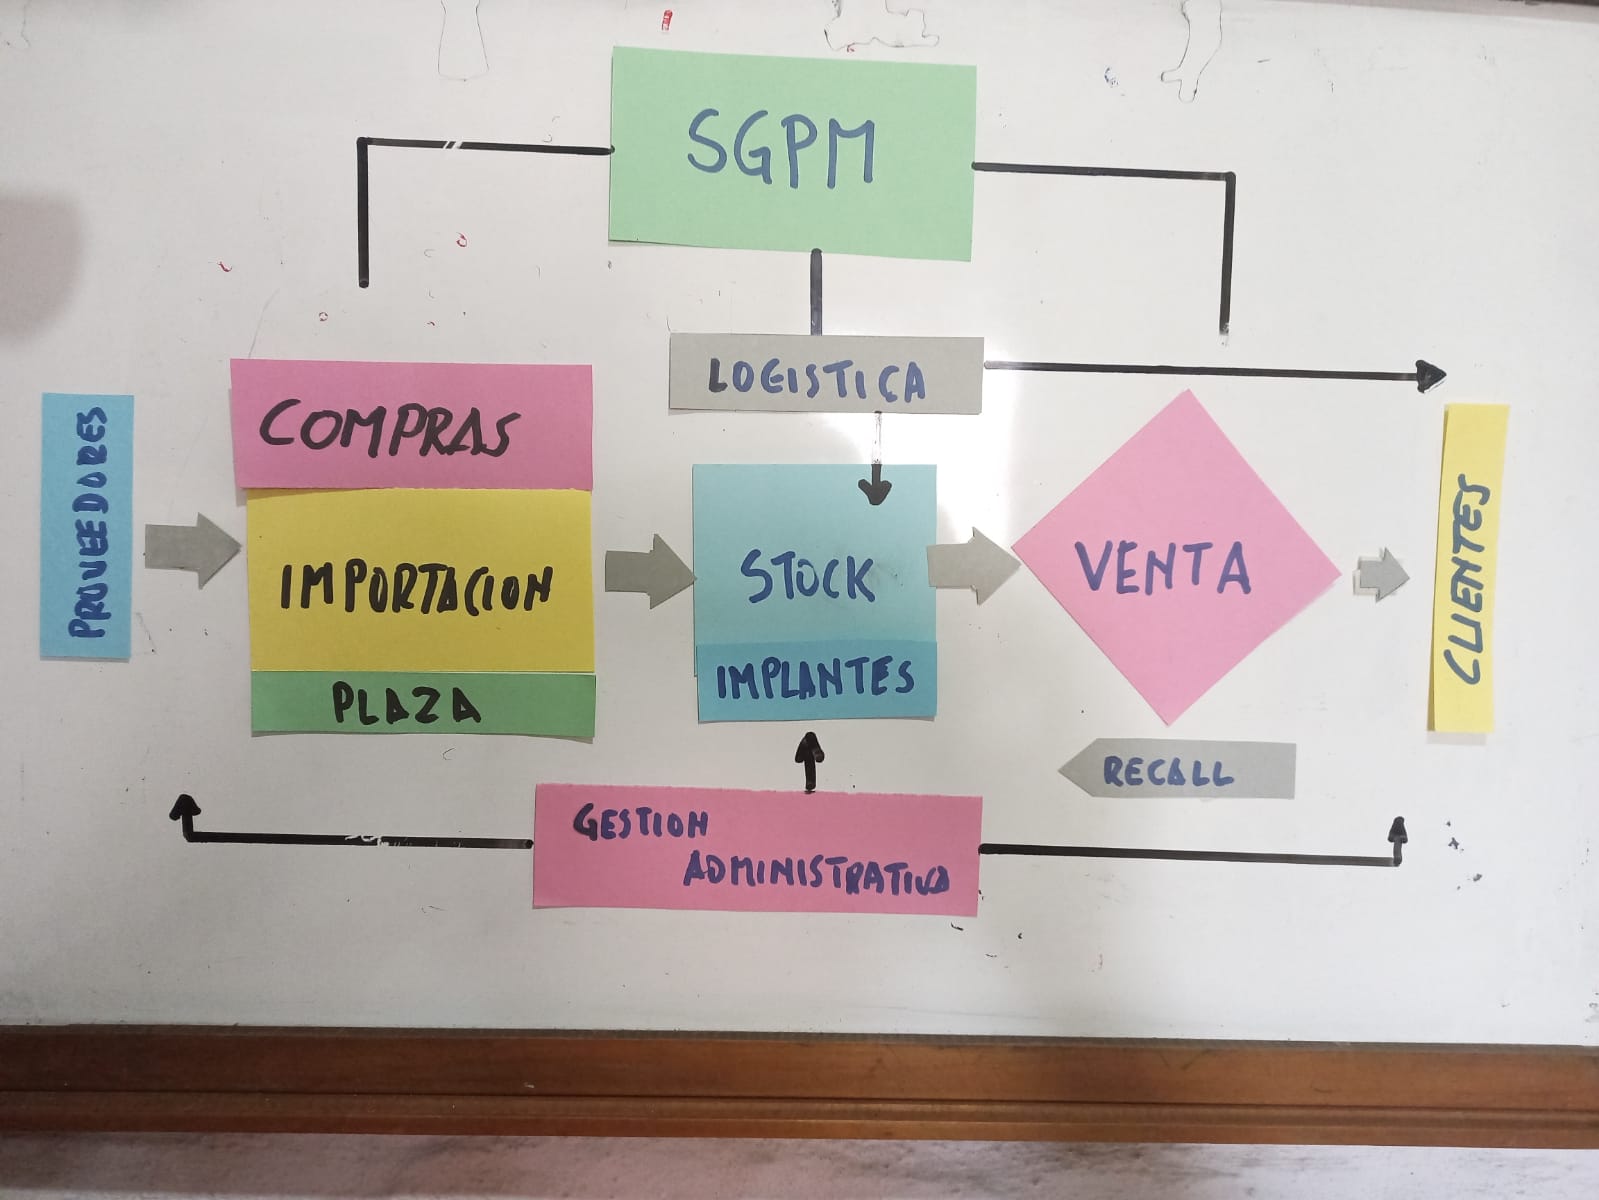 SGPM
LOGISTICA
PROVEEDORES
COMPRAS
IMPORTACION
PLAZA
STOCK
IMPLANTES
VENTA
CLIENTES
RECALL
GESTION
ADMINISTRATIVA